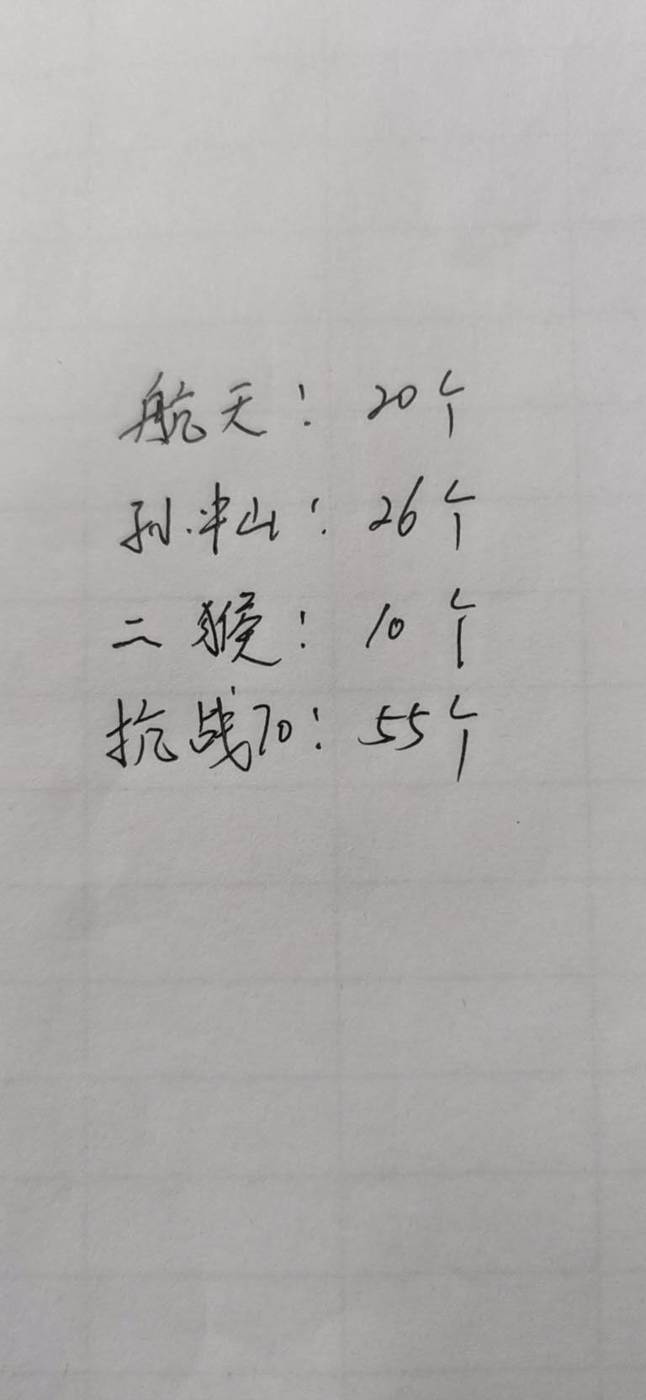 航天：20个
孙中山：26个
二猴：10个
抗战70：55个